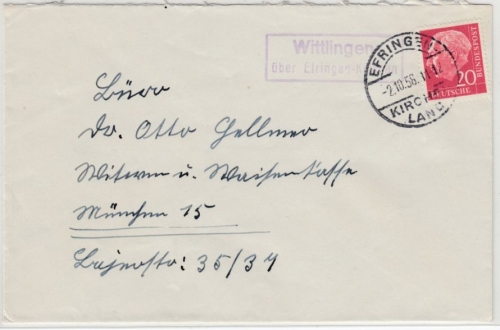 Wittlingen
über Efringen-
EFRINGEN
-2.10.56.
KIRCHEN
LAND
20
DEUTSCHE
BUNDESPOST
Büro
Dr. Otto Hellmer
Witwen u. Waisenkasse
München 15
35/37